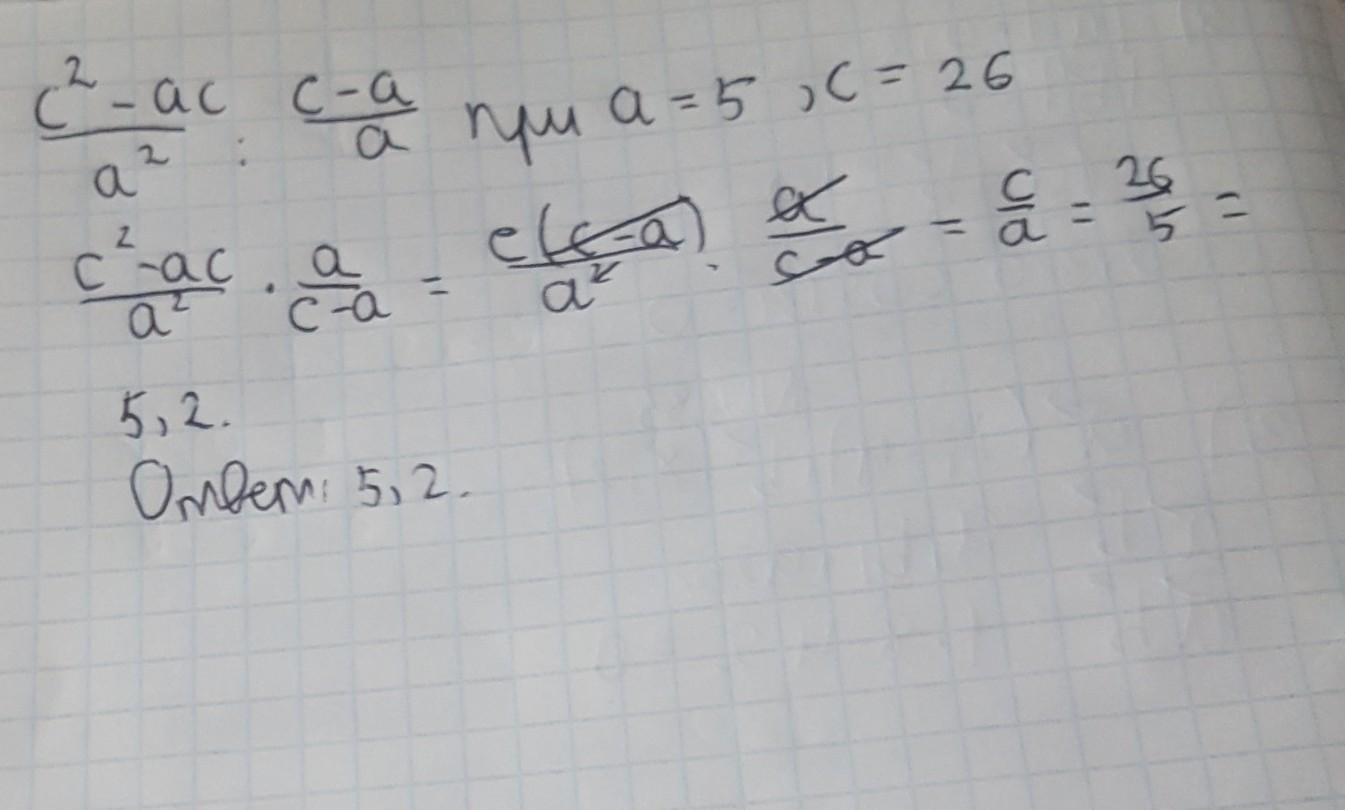 c²-ac/a² : c-a/a при a=5, c=26
c²-ac/a² · a/c-a = c(c-a)/a² · a/c-a = c/a = 26/5 =
5,2.
Ответ: 5,2.